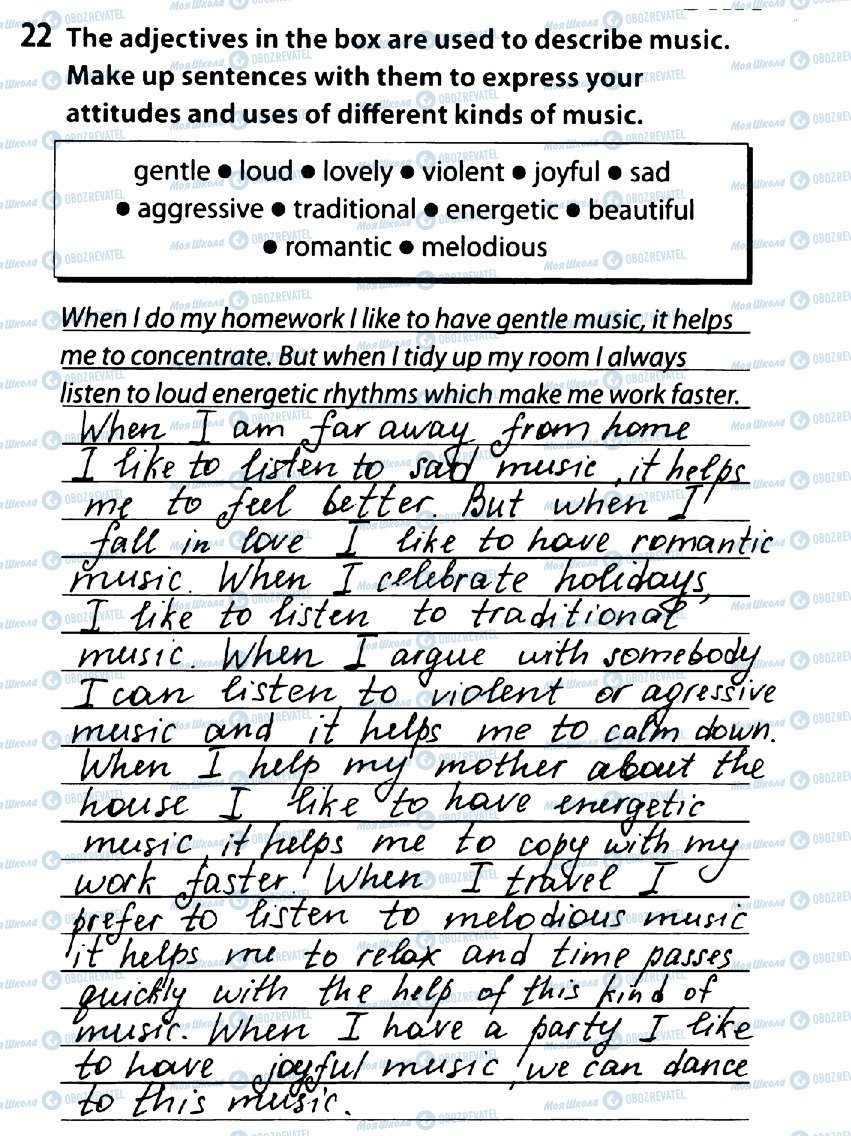 22 The adjectives in the box are used to describe music.
Make up sentences with them to express your
attitudes and uses of different kinds of music.
gentle ● loud ● lovely ● violent ● joyful ● sad
● aggressive ● traditional ● energetic ● beautiful
● romantic ● melodious
When I do my homework I like to have gentle music, it helps
me to concentrate. But when I tidy up my room I always
listen to loud energetic rhythms which make me work faster.
When I am far away from home
I like to listen to sad music, it helps
me to feel better. But when I
fall in love I like to have romantic
music. When I celebrate holidays,
I like to listen to traditional
music. When I argue with somebody
I can listen to violent or agressive
music and it helps me to calm down.
When I help my mother about the
house I like to have energetic
music, it helps me to copy with my
work faster. When I travel I
prefer to listen to melodious music
it helps me to relax and time passes
quickly with the help of this kind of
music. When I have a party I like
to have joyful music, we can dance
to this music.
МояШкола OBOZREVATEL